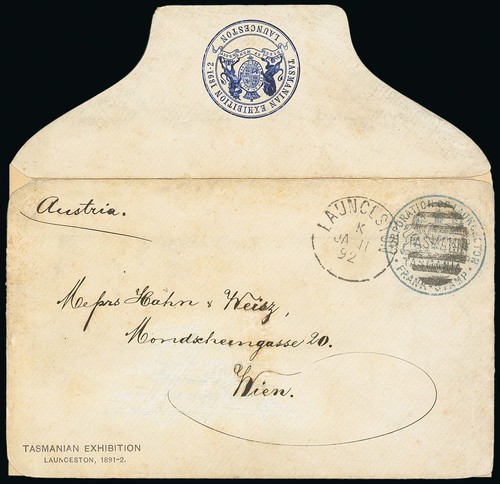 TASMANIAN EXHIBITION 1891-2
LAUNCESTON
Austria.
LAUNCESTO
K
JA 11
92
CORPORATION OF LAUNCESTON
TASMANIA
FRANK STAMP
Messrs Hahn & Weisz,
Mondscheingasse 20.
Wien.
TASMANIAN EXHIBITION
LAUNCESTON, 1891-2.